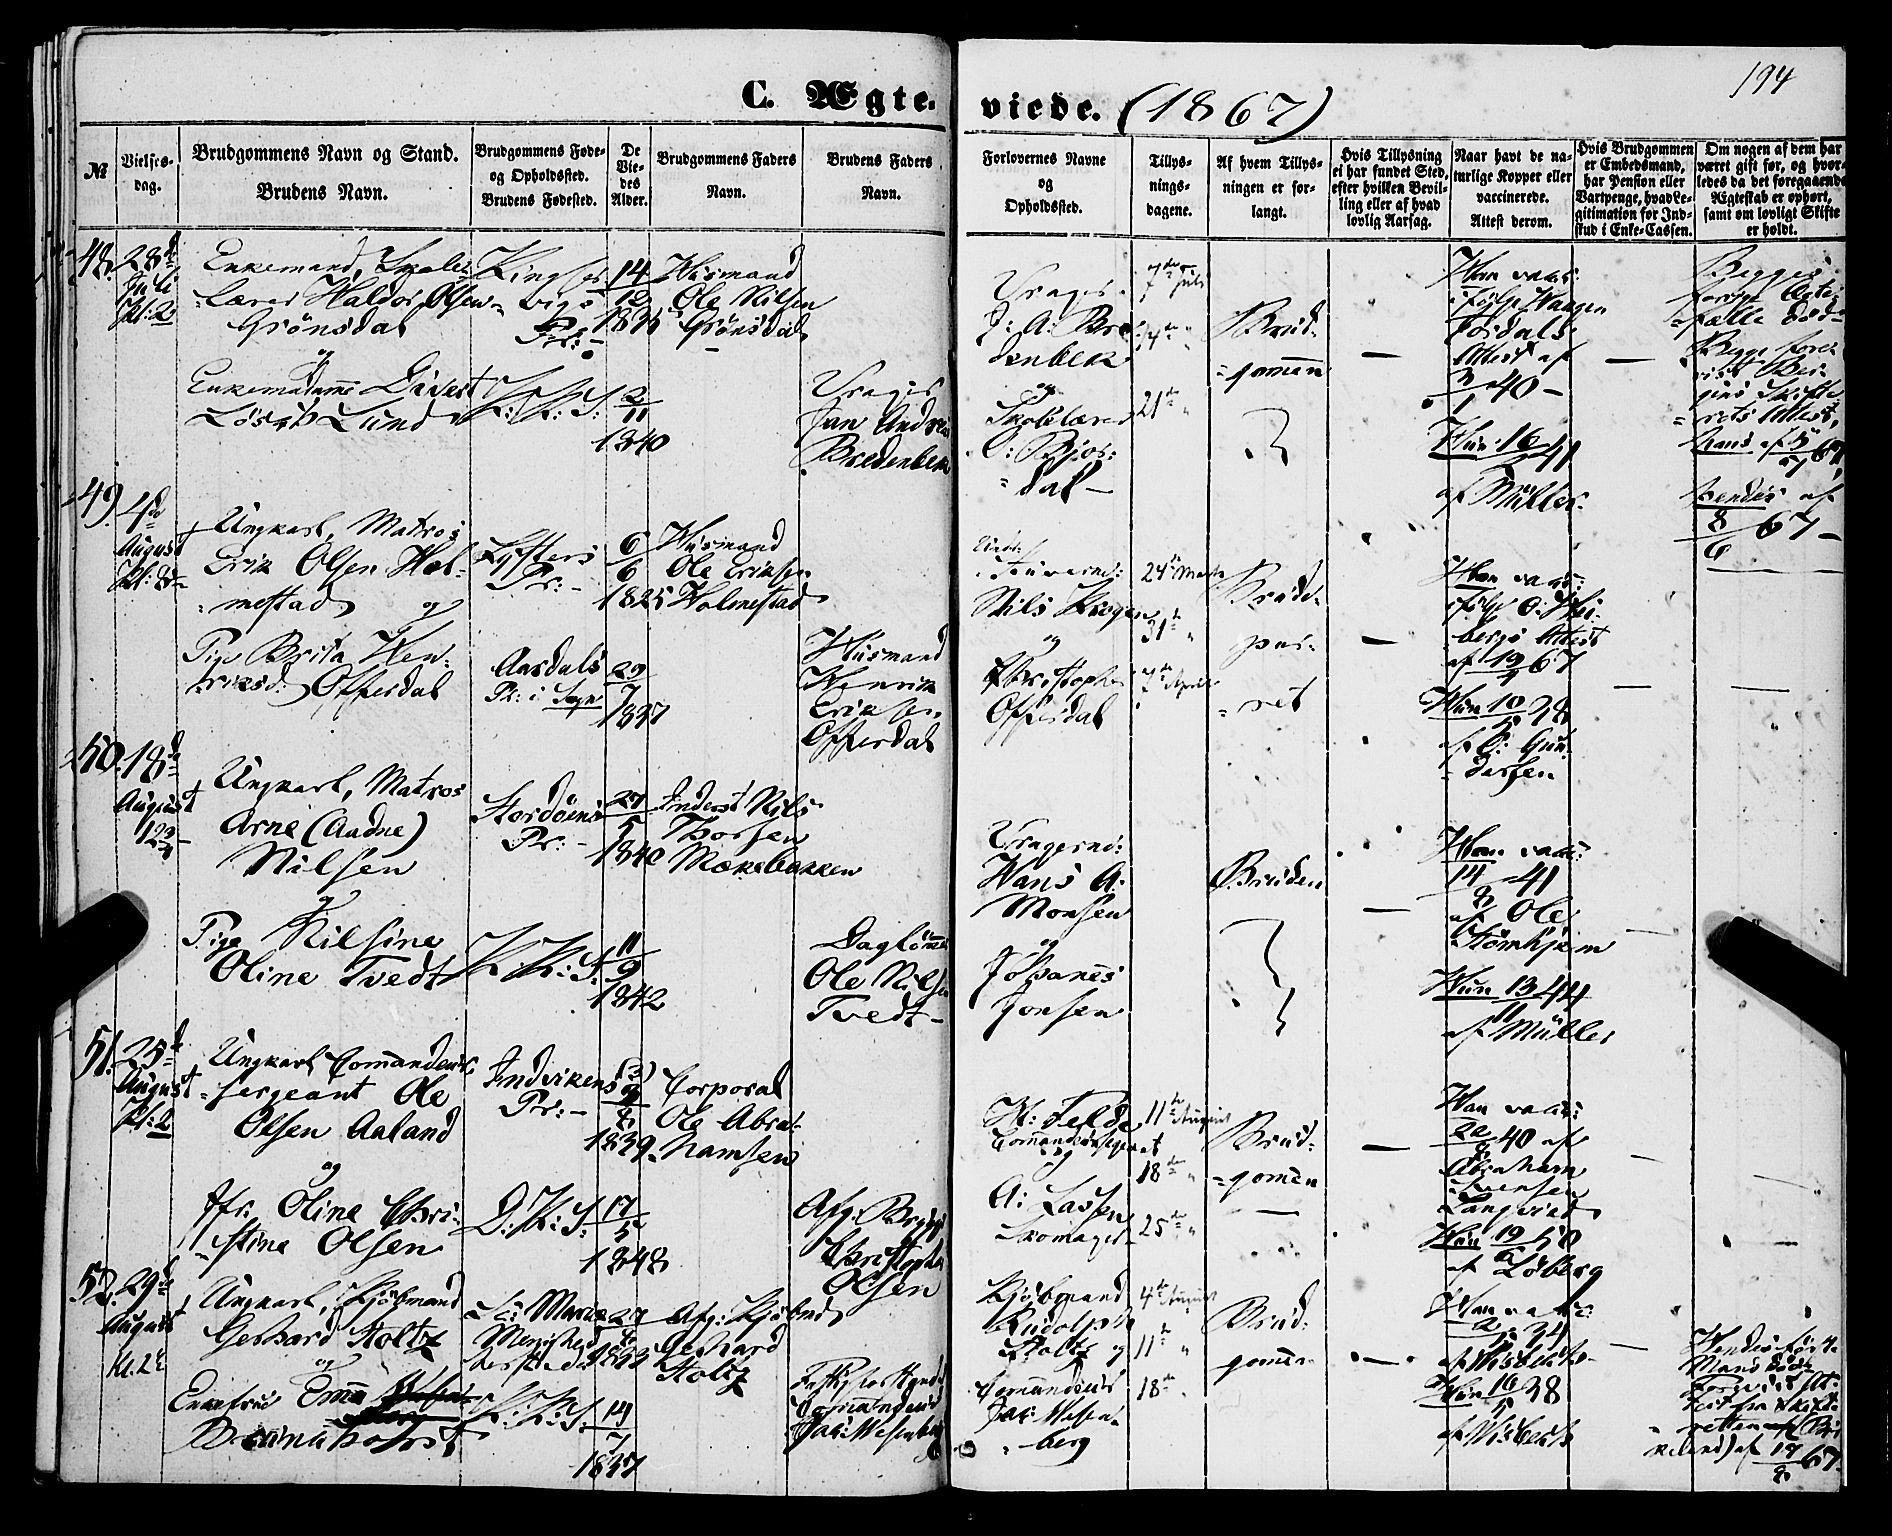 194
C. Ægte-
viede. (1867)
№
Vielses-
dag.
Brudgommens Navn og Stand.
Brudens Navn.
Brudgommens Føde-
og Opholdssted.
Brudens Fødested.
De
Vie-
des
Alder.
Brudgommens Faders
Navn.
Brudens Faders
Navn.
Forlovernes Navne
og
Opholdssted.
Tillys-
nings-
dagene.
Af hvem Tillys-
ningen er for-
langt.
Hvis Tillysning
ei har fundet Sted,
efter hvilken Bevil-
ling eller af hvad
lovlig Aarsag.
Naar havt de na-
turlige Kopper eller
vaccinerede.
Attest derom.
Hvis Brudgommen
er Embedsmand,
har Pension eller
Vartpenge, hvad Le-
gitimation for Ind-
skud i Enke-Cassen.
Om nogen af dem har
været gift før, og hvor-
ledes da det foregaaende
Ægteskab er ophørt,
samt om lovligt Skifte
er holdt.
48.
28de
Juli
Kl: 2
Enkemand, Skole-
lærer Haldor Olsen
Grönsdal
og
Enkemadame
Lund
Pr:
K:K:S:
14
12
1835
2
11
1840
Husmand
Ole Nilsen
Grönsdal
Jan Andreas
Bredenbek
J: A: Bre-
denbek
og
Skolelærer
O: Bjor-
dal
7de Juli
14de "
21de "
Brud-
gomen
Han vacc:
ifølge Haagen
Attest af
3/1 40
Hun 16/ 41
af Müller
Begges
forrige Ægte-
fælle död
hans af 5/7 67,
hendes af
8/6 67
49.
4de
August
Kl: 8
Ungkarl, Matros
Erik Olsen Hol-
mestad og
Pige Brita Hen-
riksd: Offerdal
Lysters
Pr:
Aardals
Pr: i Sogn
6
6
1825
29
7
1837
Husmand
Ole Eriksen
Holmestad
Husmand
Henrik
Eriksen
Offerdal
Nils Kroger
og
Christopher
Offerdal
24de Marts
31te "
7de April
Brude-
par-
ret
Han vacc:
ifølge O: Hei-
bergs Attest
af 19/ 67
Hun 10/ 38
af O: Gun-
dersen
50.
18de
August
Ungkarl, Matros
Arne (Aadne)
Nilsen
og
Pige Nilsine
Oline Tvedt
Stordöens
Pr:
K:K:S:
27
5
1840
11
9
1842
Inderst Nils
Thorsen
Mækebakken
Daglönner
Ole Nilsen
Tvedt
Hans A:
Monsen
og
Johanes
Jonsen
Bruden
Han vacc:
14/8 41
af Ole
Hun 13/11 44
af Müller
51.
25de
August
Kl: 2
Ungkarl, Comandeur-
sergeant Ole
Olsen Aaland
og
Jfr: Oline Chri-
stine Olsen
Indvikens
Pr:
D:K:S:
8
1839
17
5
1848
Corporal
Ole Abra-
hamsen
Afg: Bryggr
Christopher
Olsen
H: Felde
Comandeursergeant
og
A: Lassen
Skomager
11te August
18de "
25de "
Brud-
gomen
Han vacc:
22/8 40 af
Abraham
Svensen
Langvied
Hun 19/ 50
af Löberg
52.
29de
August
Ungkarl, Kjöbmand
Gerhard Stoltz
og
Enkefrue Ema
K:K:S:
27
1833
14
7
1837
Afg: Kjöbmd
Gerhard
Stoltz
Jac: Wesenberg
Kjöbmand
Rudolph
Stoltz og
Comandeur
Jac: Wesen-
berg
4de August
11te "
18de "
Brud-
gomen
Han vacc:
34
af Wisbech
Hun 16/ 38
af Wisbech
Hendes förste
Mand död
af 17/8 67